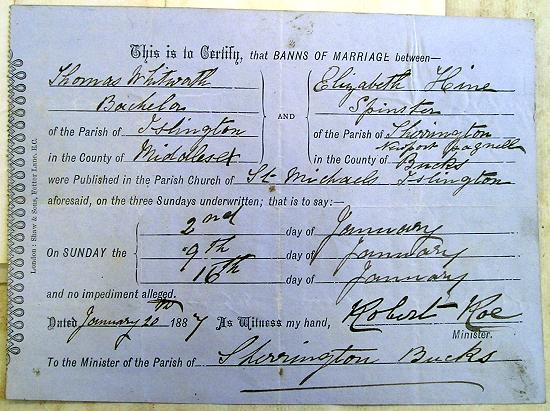 This is to Certify, that BANNS OF MARRIAGE between—
Thomas Whitworth Elizabeth Hine
Bachelor AND Spinster
of the Parish of Islington of the Parish of Sherrington
Newport Pagnell
in the County of Middlesex in the County of Bucks
were Published in the Parish Church of St Michaels Islington
aforesaid, on the three Sundays underwritten; that is to say:—
2nd day of January
On SUNDAY the 9th day of January
16th day of January
and no impediment alleged.
Dated January 20th 1887 As Witness my hand, Robert Roe
Minister.
To the Minister of the Parish of Sherrington Bucks
London: Shaw & Sons, Fetter Lane, E.C.